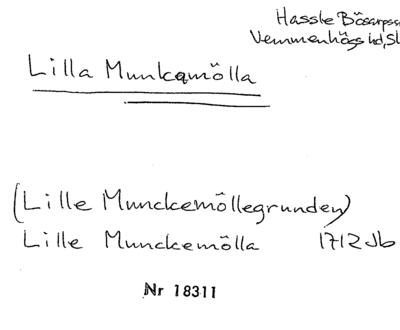 Hassle Bösarps
Vemmenhögs hd, Sk
Lilla Munkamölla
(Lille Munckemöllegrunden)
Lille Munckemölla 1712 Jb
Nr 18311